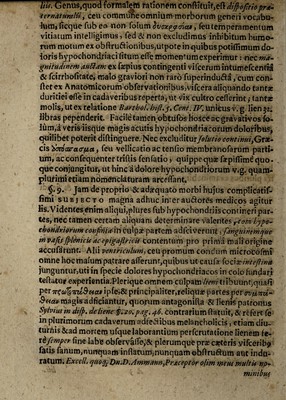 lii. Genus, quod formalem rationem constituit, est dispositio præ-
ternaturalis, ceu commune omnium morborum generi vocabu-
lum, sicque sub eo non solum δυσκρασίαι, seu temperamentum
vitiatum intelligimus, sed & non excludimus inhibitum humo-
rum motum ex obstructionibus, utpote in quibus potissimum do-
toris hypochondriaci situm esse momentum experimur: nec ma-
gnitudinem auctam ex iisq; vas contingenti viscerum intumescentiâ
& scirrhositate, malo graviori non rarò superinductâ, cum con-
stet ex Anatomicorum observationibus, viscera aliquando tantæ
duritiei esse in cadaveribus reperta, ut vix cultro cesserint, & tantæ
molis, ut ex relatione Barthol. hist. Cent. IV. unicus v. g. lien
libras pependerit. Facilè tamen obtusos hosce ac gravativos so-
lùm, à veris iisque magis acutis hypochondriacorum doloribus,
quilibet poterit distinguere. Nec excluditur solutio continui, Græ-
cis seu vellicatio ac tensio membranosarum parti-
um, ac consequenter tristis sensatio, quippe quæ sæpissimè quo-
que conjungitur, ut hinc à dolore hypochondriorum v. g. quam-
plurimi etiam nomenclaturam arcessant.
§. 9. Jam de proprio & adæquato morbi hujus complicatis-
simi SUBJECTO magna adhuc inter auctores medicos agitur
lis. Videntes enim aliqui, plures sub hypochondriis contineri par-
tes, nec tamen certam aliquam determinare valentes, cum hypo-
chondriorum in culpæ partem adsciverunt; sanguinemque
in vasis splenicis ac epigastricis contentum pro prima mali origine
accusârunt. Alii mesericulum, ceu pomum condum microcosmi
omne hoc malum patrare asserunt, quibus ut causæ sociæ intestina
junguntur, uti in specie dolores hypochondriacos in colo fundari
testatur experientia. Plerique omnem culpam lieni tribuunt, quasi
per ipsi, & principaliter, reliquæ partes per
magis adficiantur, quorum antagonista & lienis patronus
Sylvius in disp. de liene §. 20. pag. 46. contrarium statuit, & refert se
in plurimorum cadaverum ædictibus melancholicis, etiam diu-
turnis & ad mortem usque laborantium perscrutatione lienem fe-
rè semper sine labe observâsse, & plerunque præ cæteris visceribus
satis sanum, nunquam inflatum, nunquam obstructum aut indu-
ratum. Excell. quoq; Dn. D. Ammann, Præceptor olim meus multis no-
minibus